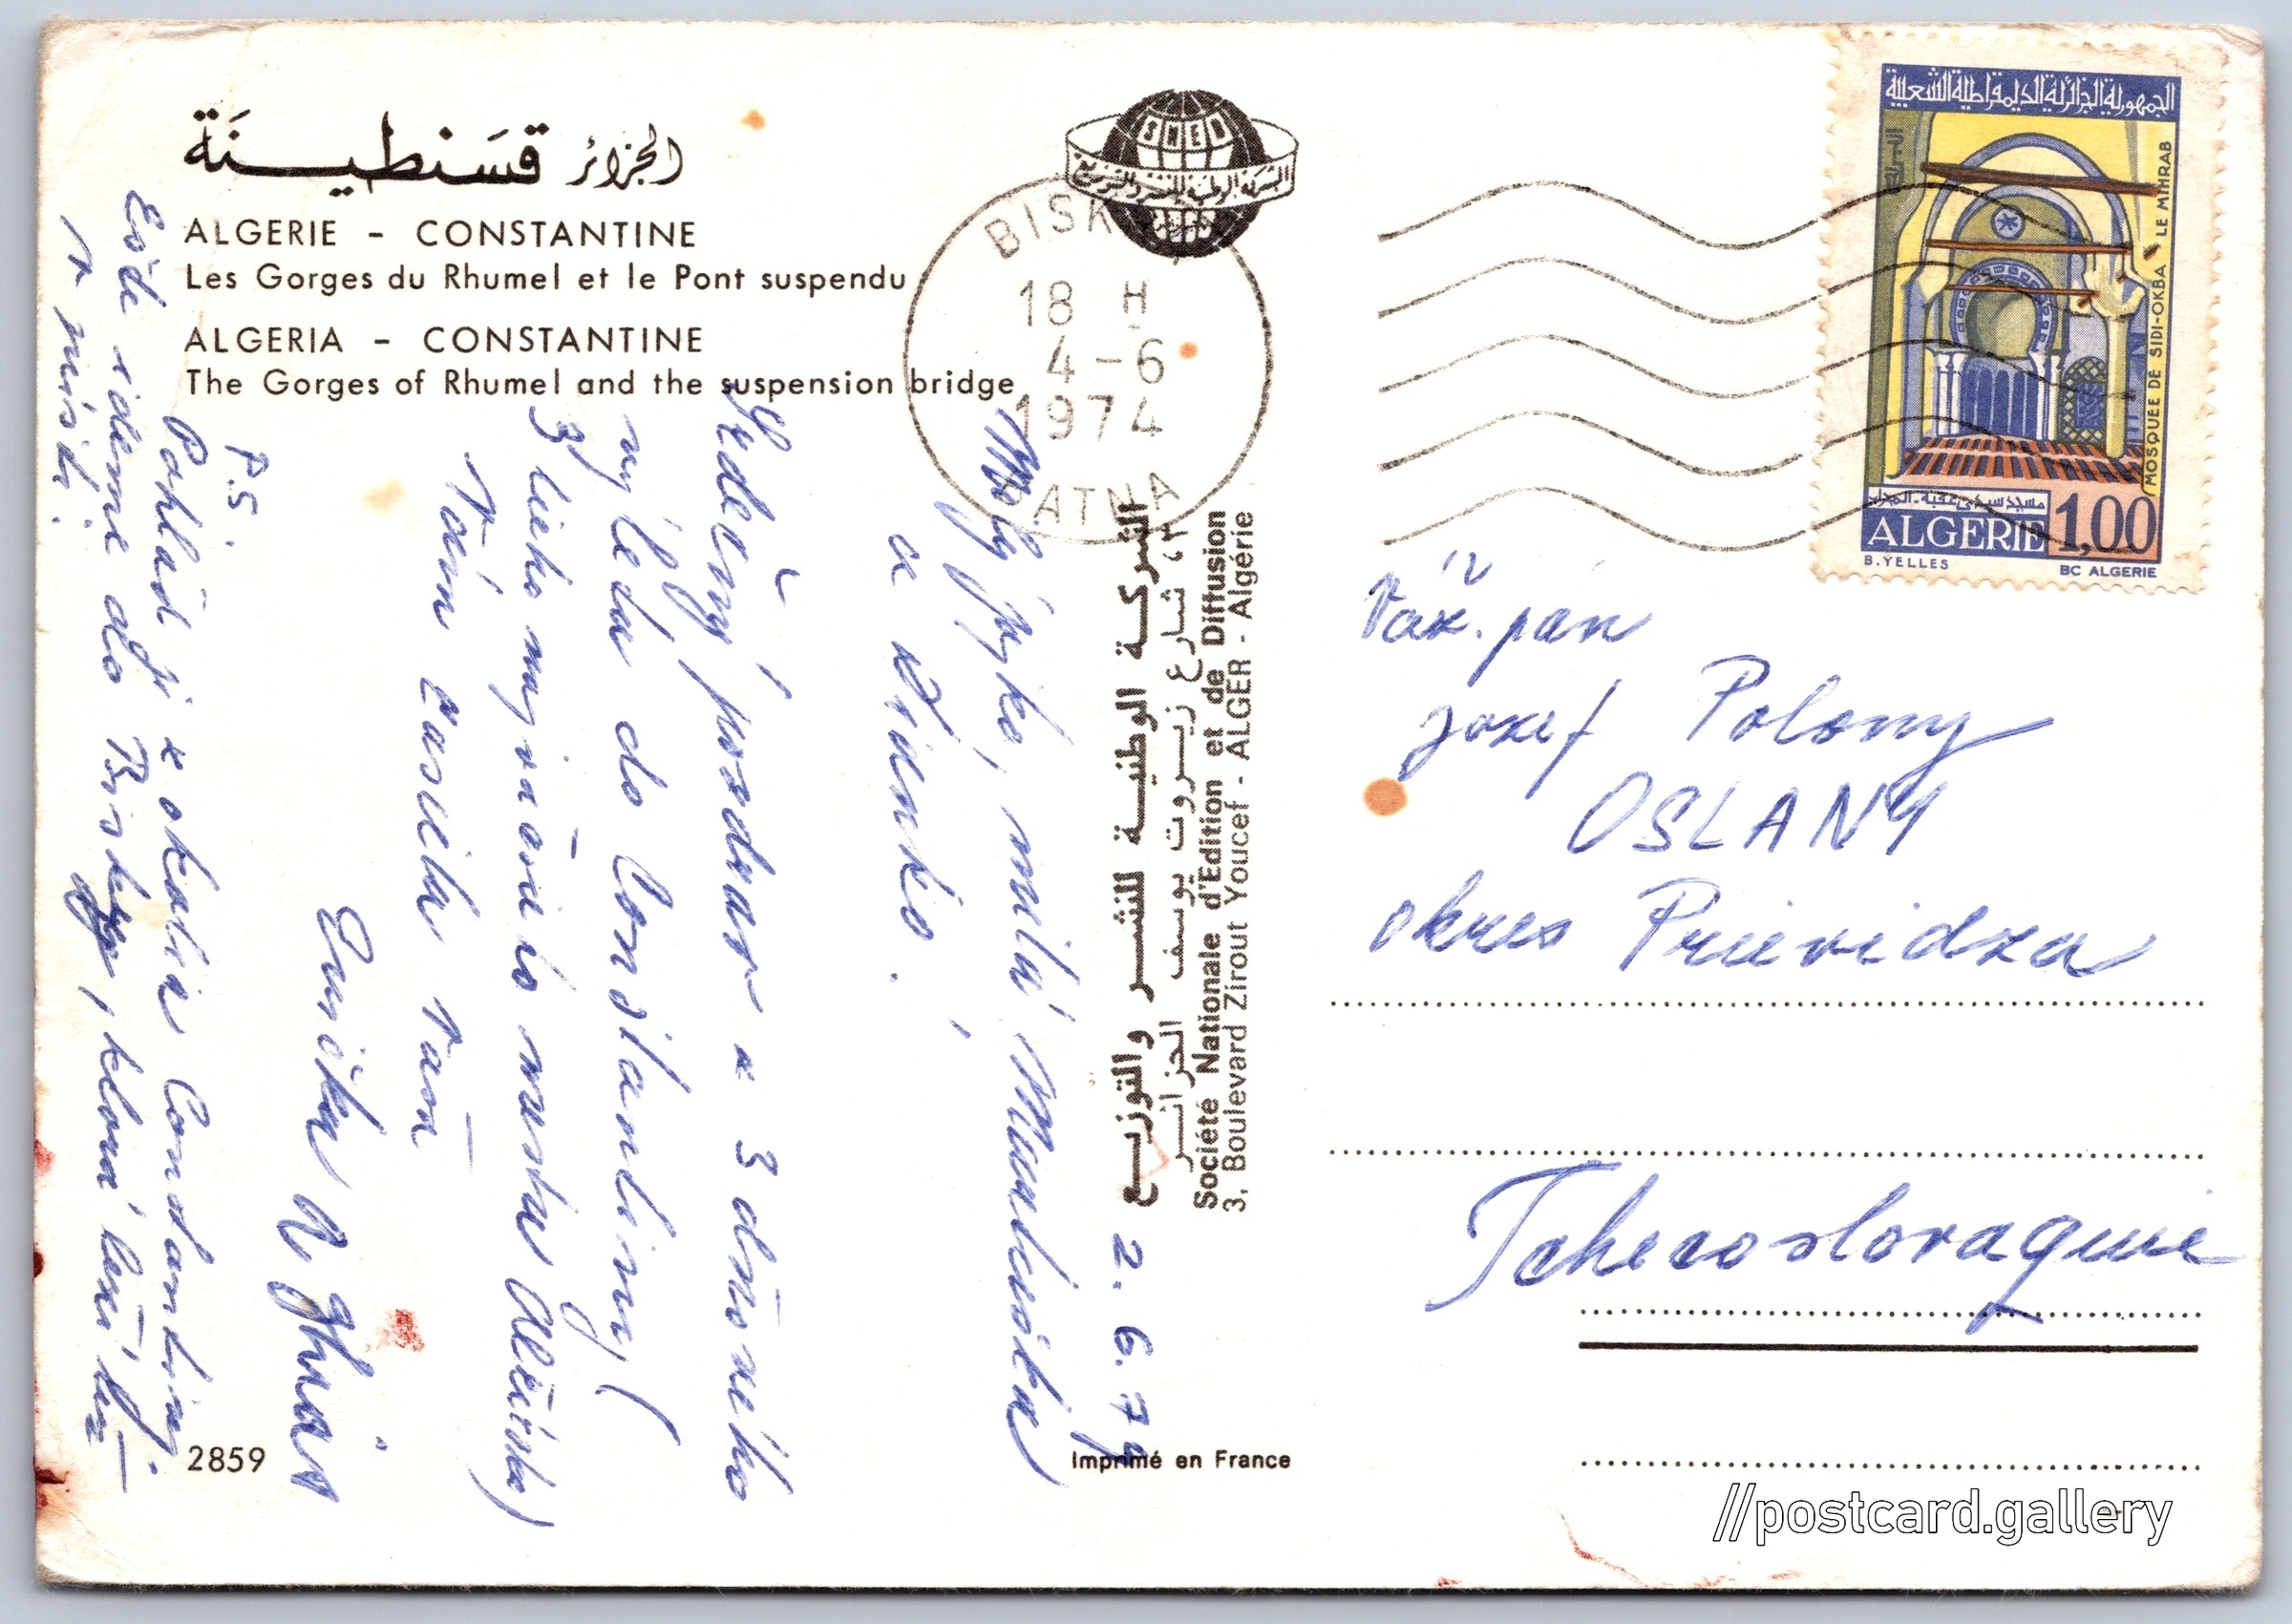 الجزائر قسنطينة
ALGERIE - CONSTANTINE
Les Gorges du Rhumel et le Pont suspendu
ALGERIA - CONSTANTINE
The Gorges of Rhumel and the suspension bridge
SNED
الشركة الوطنية للنشر والتوزيع
BISK
18 H
4-6
1974
BATNA
الجمهورية الجزائرية الديمقراطية الشعبية
البريد
MOSQUEE DE SIDI-OKBA LE MIHRAB
ALGERIE 1,00
B.YELLES
BC ALGERIE
2. 6. 74
Môj Jožko, milá Mančička
a Zdenko.
Srdečný pozdrav z 3 dňového
výletu do Constantiny (
3 lieho najväčšieho mesta Alžírska)
Vám zasiela Vaša
Anička R
P.S.
Pohľad je z okolia Constantiny.
Ešte ideme do Biskry, ktorá leží už
v púšti.
الشركة الوطنية للنشر والتوزيع
٣، شارع زيروت يوسف الجزائر
Société Nationale d'Edition et de Diffusion
3, Boulevard Zirout Youcef - ALGER - Algérie
Váž. pán
Jozef Polomy
OSLANY
okres Prievidza
Tchecoslovaquie
2859
Imprimé en France
//postcard.gallery